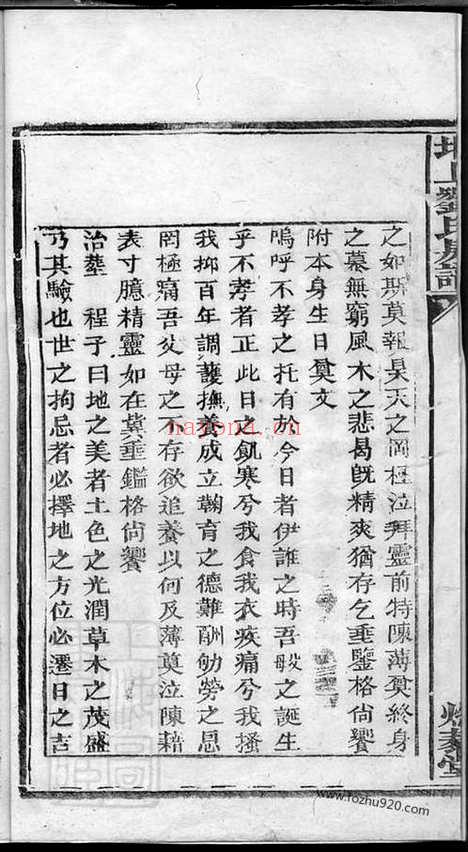 之如斯莫報昊天之罔極泣拜靈前特陳薄奠終身
之慕無窮風木之悲曷既精爽猶存乞垂鑒格尙饗
附本身生日奠文
嗚呼不孝之托有於今日者伊誰之時吾毀之誕生
乎不孝者正此日之飢寒兮我食我衣疾痛兮我搔
我抑百年調護撫養成立鞠育之德難酬劬勞之恩
罔極痛吾父母之不存欲追養以何及薄奠泣陳藉
表寸臆精靈如在冀垂鑑格尙饗
治塟 程子曰地之美者土色之光潤草木之茂盛
乃其驗也世之拘忌者必擇地之方位必選日之吉
上劉氏房譜
堂
hanona.cn
www.fozhu920.com